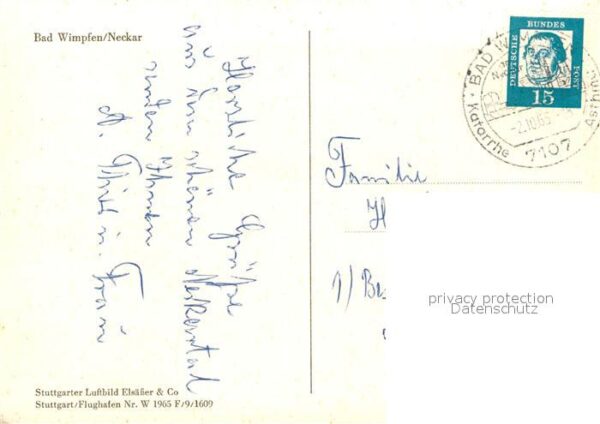 Bad Wimpfen/Neckar
Herzliche Grüße
aus dem schönen Neckartal
senden Ihnen
u. Frau
DEUTSCHE BUNDES POST
15
BAD W
Katarrhe
Asthm
2.10.63
7107
Familie
H
1) Be
privacy protection
Datenschutz
Stuttgarter Luftbild Elsäßer & Co
Stuttgart/Flughafen Nr. W 1965 F/9/1609